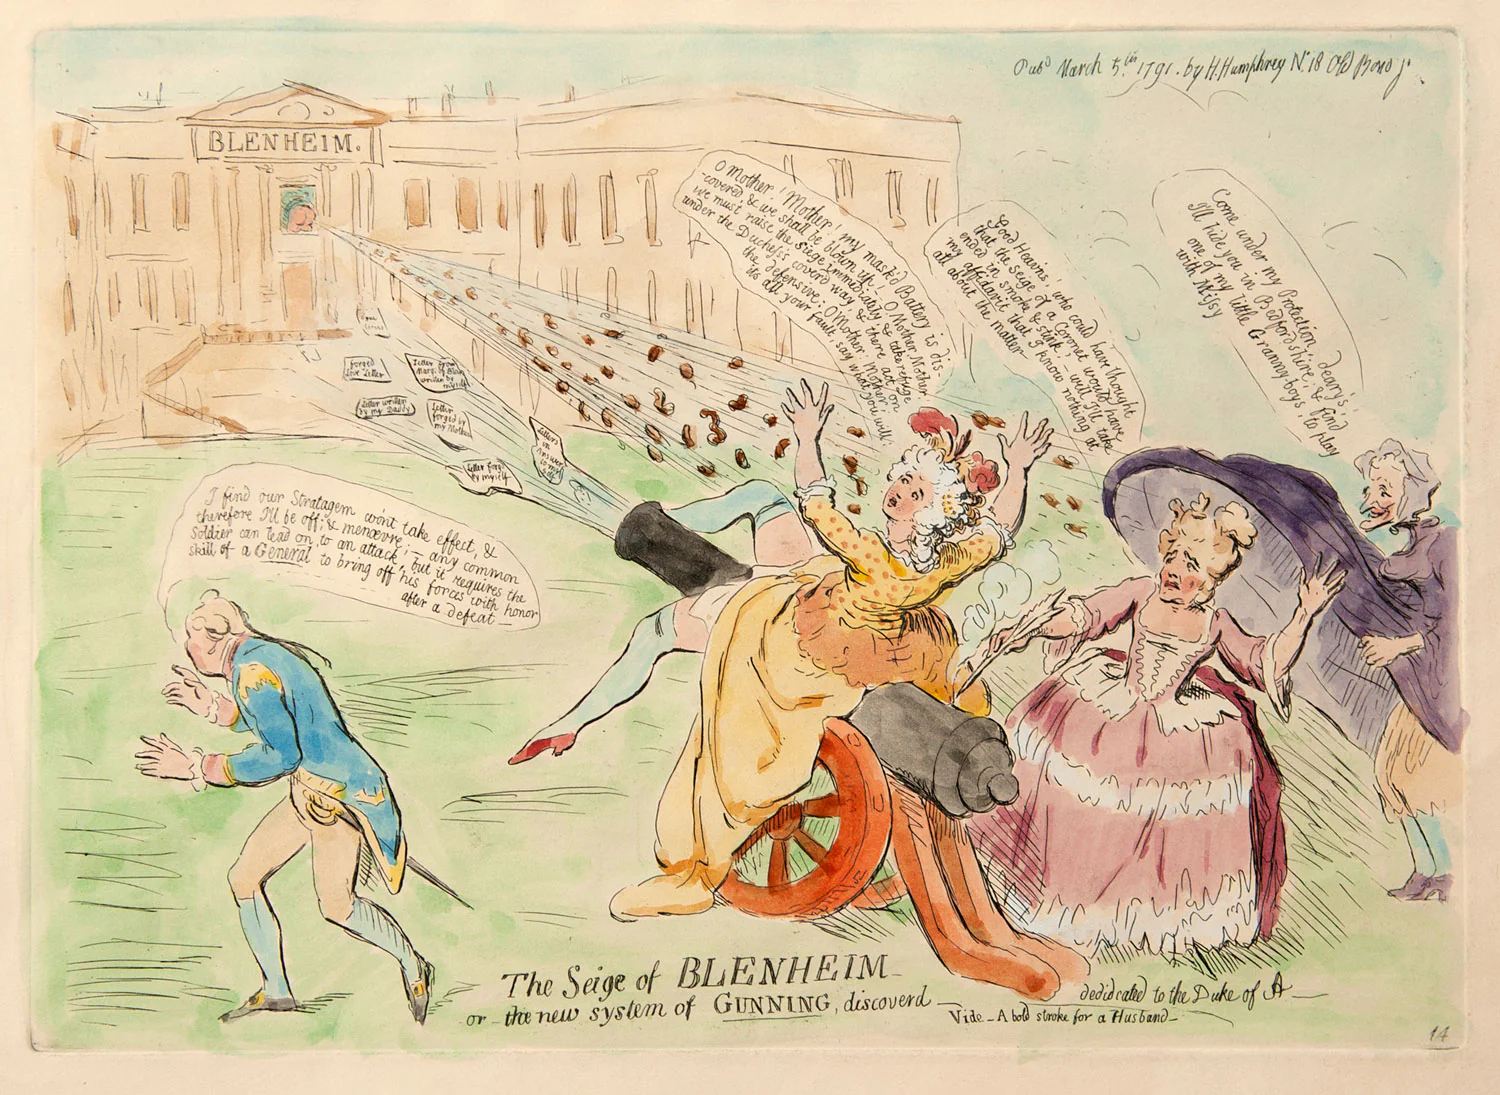 Pubd March 5th 1791. by H. Humphrey No 18 Old Bond
BLENHEIM.
O Mother! Mother! my mask'd Battery is dis-
-coverd & we shall be blown up! - O Mother Mother,
we must raise the siege immediately & take refuge
under the Duchess's coverd way & there act on
the defensive: O Mother: Mother,
its all your fault, say what you will.
Good Heavns! who could have thought
that the seige of a Coronet would have
ended in smoke & stink! - well Ill take
my affidavit that I know nothing at
all about the matter
Come under my Protection, dearys'!
I'll hide you in Bedfordshire; & find
one of my little Granny-boys to play
with Missy
Forged
Love Letter
Letter from
written by
my self
Letter written
by my Daddy
Letter
forged by
my Mother
Letter forg'd
by myself
Letters
in
answer
to my
self
I find our Stratagem wont take effect, &
therefore I'll be off; & menœvre, - any common
Soldier can lead on, to an attack! but it requires the
skill of a General to bring off his forces with honor
after a defeat
The Seige of BLENHEIM
or - the new system of GUNNING, discoverd
dedicated to the Duke of A
Vide - A bold stroke for a Husband
14